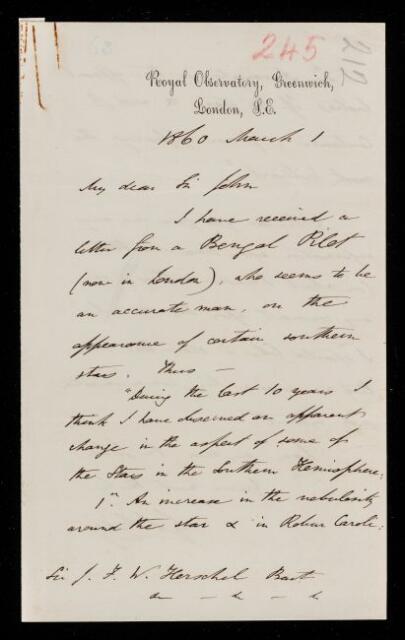 245
212
Royal Observatory, Greenwich,
London, S.E.
1860 March 1
My dear Sir John
I have received a
letter from a Bengal Pilot
(now in London), who seems to be
an accurate man, on the
appearance of certain southern
stars. Thus —
"During the last 10 years I
think I have discerned an apparent
change in the aspect of some of
the Stars in the Southern Hemisphere:
1st. An increase in the nebulosity
around the star α in Robur Caroli:
Sir J. F. W. Herschel Bart